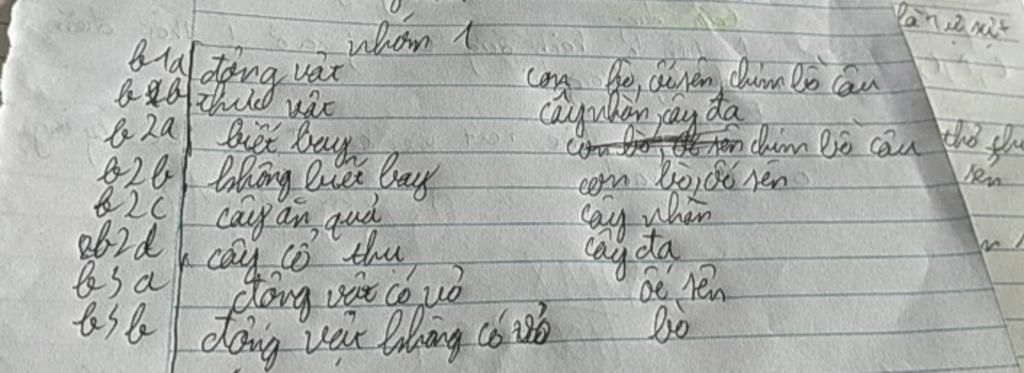 nhóm 1
b1a động vật con bò, ốc sên, chim bồ câu
b1b thực vật cây nhãn, cây đa
b2a biết bay chim bồ câu
b2b không biết bay con bò, ốc sên
b2c cây ăn quả cây nhãn
b2d cây cổ thụ cây đa
b3a động vật có vỏ ốc sên
b3b động vật không có vỏ bò